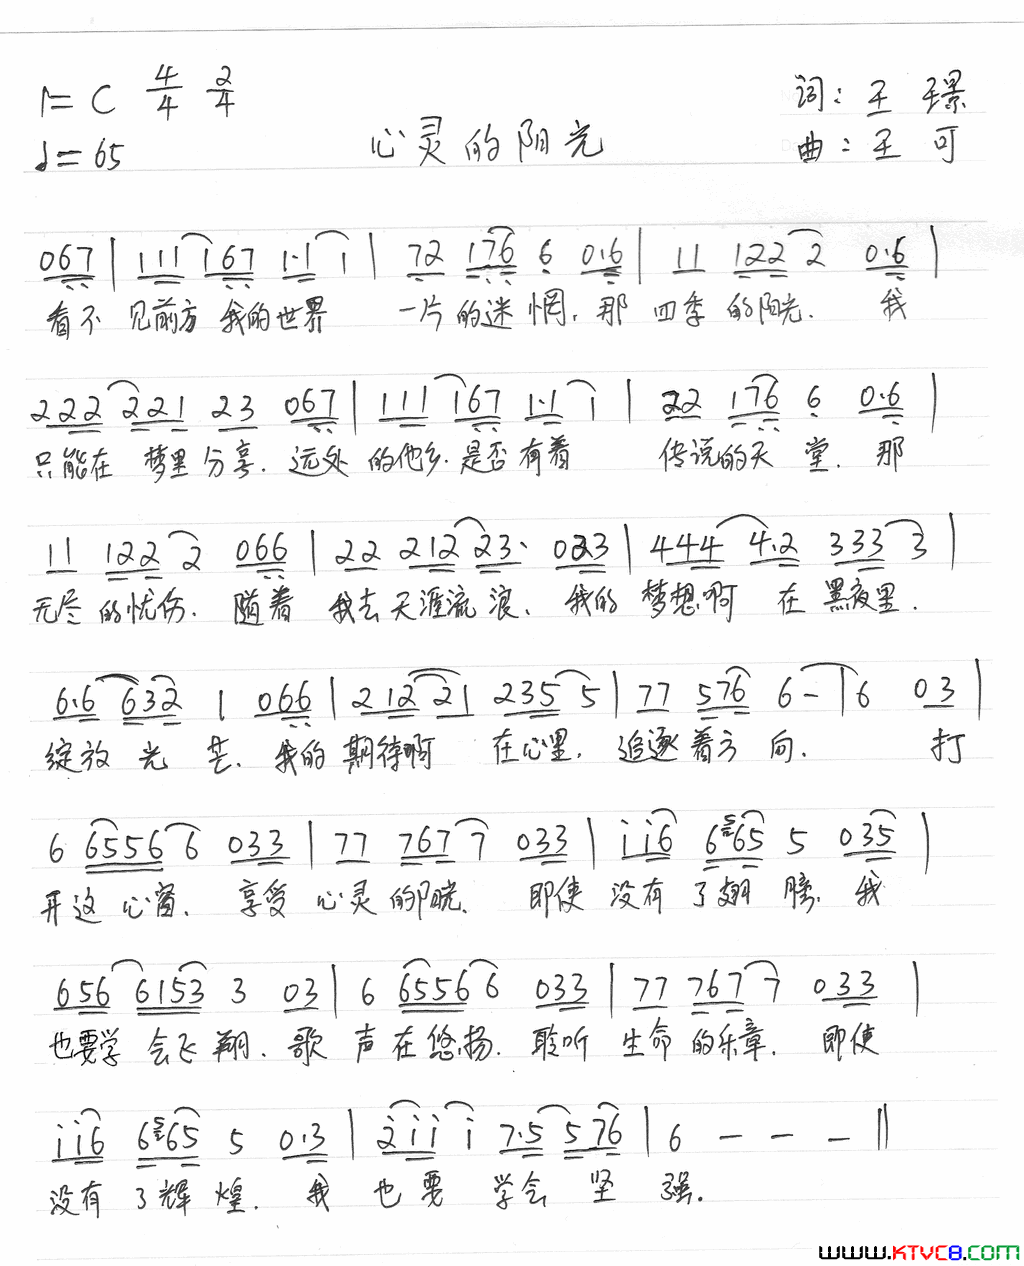 1=C 4/4 2/4 词：王璟
♩=65 心灵的阳光 曲：王可
067 | 111 167 1·1 1 | 72 176 6 0·6 | 11 122 2 0·6 |
看不 见前方 我的世界 一片的迷惘. 那 四季的阳光. 我
222 221 23 067 | 111 167 1·1 1 | 22 176 6 0·6 |
只能在 梦里分享. 远处 的他乡. 是否有着 传说的天堂. 那
11 122 2 066 | 22 212 23· 023 | 444 4·2 333 3 |
无尽的忧伤. 随着 我去天涯流浪. 我的 梦想啊 在黑夜里.
6·6 632 1 066 | 212 21 235 5 | 77 576 6 - | 6 03 |
绽放光芒. 我的 期待啊 在心里. 追逐着方向. 打
6 6556 6 033 | 77 767 7 033 | i i6 6 5 65 5 035 |
开这心窗. 享受 心灵的阳光. 即使 没有了翅膀. 我
656 6153 3 03 | 6 6556 6 033 | 77 767 7 033 |
也要学会飞翔. 歌 声在悠扬. 聆听 生命的乐章. 即使
i i6 6 5 65 5 0·3 | 2 i i i 7·5 5 76 | 6 - - - ‖
没有了辉煌. 我 也要 学会坚强.
www.KTVC8.com